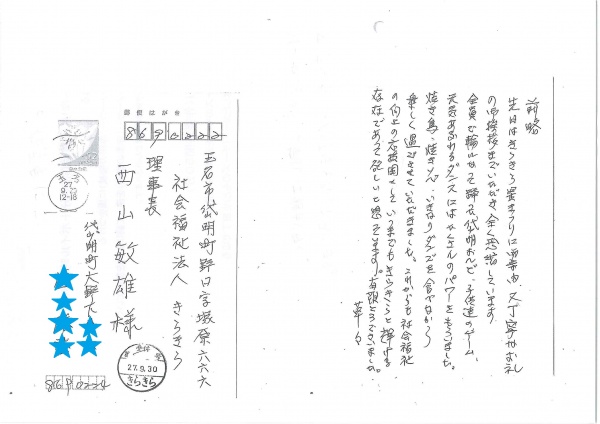 郵便はがき
869-0222
玉名市岱明町野口字城原六六六
社会福祉法人 きらきら
理事長
西山敏雄様
27.9.
12-18
岱明町大野下
27.9.30
きらきら
869 0224
前略
先日はきらきら星まつりに
又丁寧なお礼
の御挨拶までいただき全く恐縮しています
全員で輪になって踊る岱明おんど、子供達のゲーム、
元気あふれるダンスにはたくさんのパワーをもらいました。
焼き鳥、焼きそば、いきなりダンゴを食べながら
楽しく過ごさせていただきました。これからも社会福祉
の向上の応援団としていつまでもきらきらと輝ける
存在であって欲しいと思っています。有難とうございました。
草々